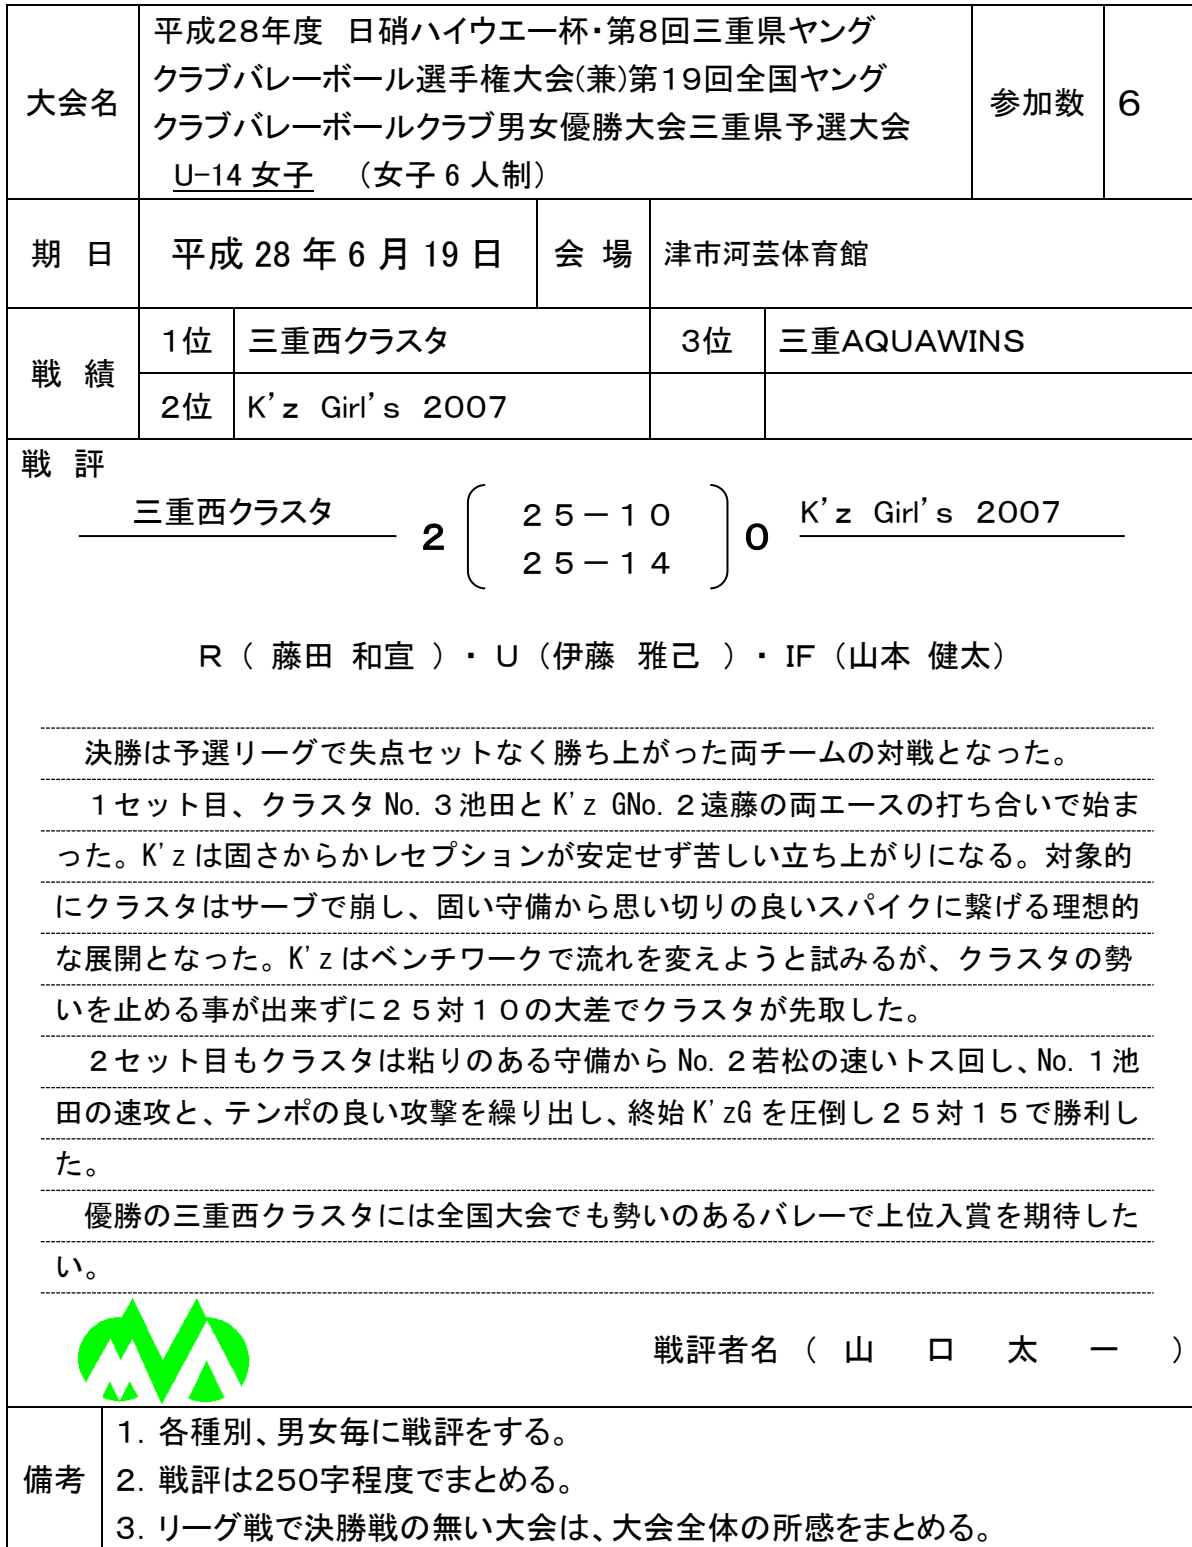 大会名
平成28年度　日硝ハイウエー杯・第8回三重県ヤング
クラブバレーボール選手権大会(兼)第19回全国ヤング
クラブバレーボールクラブ男女優勝大会三重県予選大会
U-14 女子　（女子 6 人制）
参加数
6
期 日
平成 28 年 6 月 19 日
会 場
津市河芸体育館
戦 績
1位
三重西クラスタ
3位
三重AQUAWINS
2位
K’z Girl’s 2007
戦 評
三重西クラスタ
2
25－10
25－14
0
K’z Girl’s 2007
R（ 藤田 和宣 ）・ U（伊藤 雅己 ）・ IF（山本 健太）
決勝は予選リーグで失点セットなく勝ち上がった両チームの対戦となった。
１セット目、クラスタ No.３池田と K'z GNo.２遠藤の両エースの打ち合いで始ま
った。K'z は固さからかレセプションが安定せず苦しい立ち上がりになる。対象的
にクラスタはサーブで崩し、固い守備から思い切りの良いスパイクに繋げる理想的
な展開となった。K'z はベンチワークで流れを変えようと試みるが、クラスタの勢
いを止める事が出来ずに２５対１０の大差でクラスタが先取した。
２セット目もクラスタは粘りのある守備から No.２若松の速いトス回し、No.１池
田の速攻と、テンポの良い攻撃を繰り出し、終始 K'zG を圧倒し２５対１５で勝利し
た。
優勝の三重西クラスタには全国大会でも勢いのあるバレーで上位入賞を期待した
い。
戦評者名 （ 山 口 太 一 ）
備考
1. 各種別、男女毎に戦評をする。
2. 戦評は250字程度でまとめる。
3. リーグ戦で決勝戦の無い大会は、大会全体の所感をまとめる。